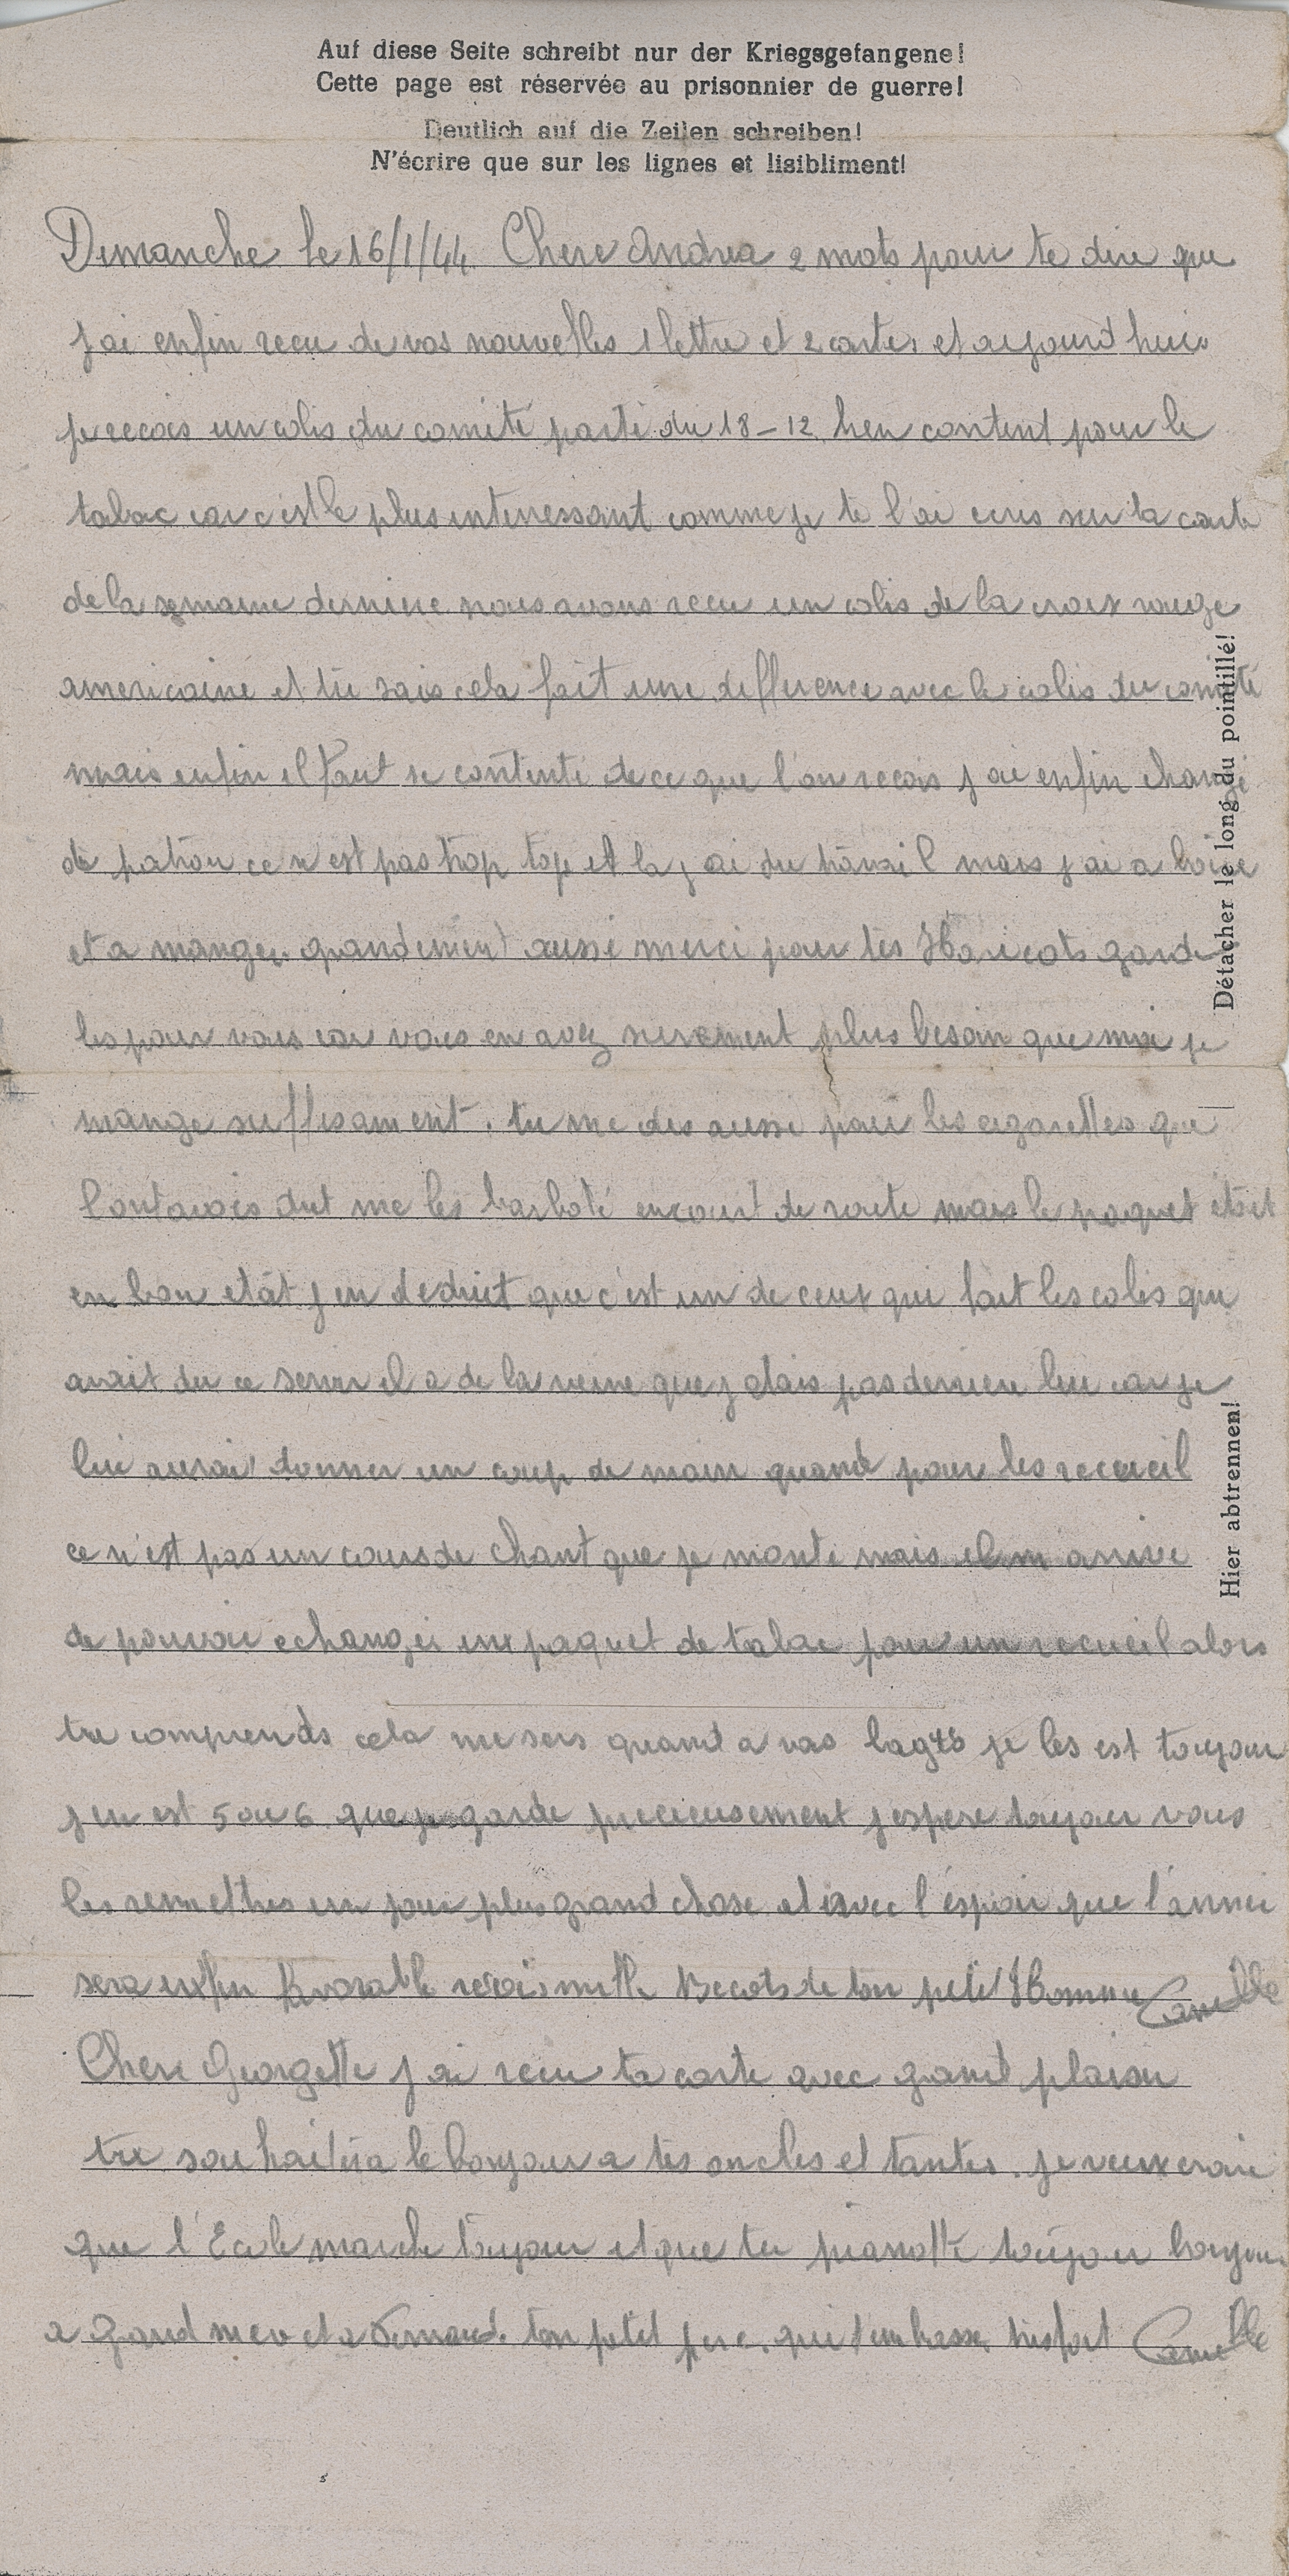 Auf diese Seite schreibt nur der Kriegsgefangene!
Cette page est réservée au prisonnier de guerre!
Deutlich auf die Zeilen schreiben!
N'écrire que sur les lignes et lisibliment!
Dimanche le 16/1/44. Chere Andrea 2 mots pour te dire que
j ai enfin recu de vos nouvelles 1 lettre et 2 cartes et aujourd hui
je recois un colis du comité parti du 18-12 bien content pour le
tabac car c est le plus interressant comme je te l'ai ecris sur la carte
de la semaine derniere nous avons recu un colis de la croix rouge
americaine et tu sais cela fait une difference avec le colis du comité
mais enfin il faut se contenté de ce que l'on recois j ai enfin changé
de patron ce n est pas trop top et la j ai du travail mais j ai a boire
et a manger grandement aussi merci pour tes Haricots garde
les pour vous car vous en avez surement plus besoin que moi je
mange suffisament. tu me dis aussi pour les cigarettes que
l'ont avais dut me les barboté en court de route mais le paquet etait
en bon etat j en deduit que c'est un de ceux qui fait les colis qui
avait du ce servir il a de la veine que j etais pas derriere lui car je
lui aurai donner un coup de main quand pour les recueil
ce n'est pas un cours de chant que je monte mais il m arrive
de pouvoir echanger un paquet de tabac pour un recueil alors
tu comprends cela me sers quand a vos je les est toujour
j en est 5 ou 6 que je garde precieusement j espere toujour vous
les remettres un jour plus grand chose et avec l'espoir que l'année
sera enfin favorable recois mille Becots de ton petit Homme Camille
Chere Georgette j ai recu ta carte avec grand plaisir
tu souhaitera le bonjour a tes oncles et tantes. je veux croire
que l'Ecole marche toujour et que tu pianotte toujour bonjour
a grand mere et a Fernand. ton petit pere. qui t embrasse tres fort Camille
Détacher le long du pointillé!
Hier abtrennen!